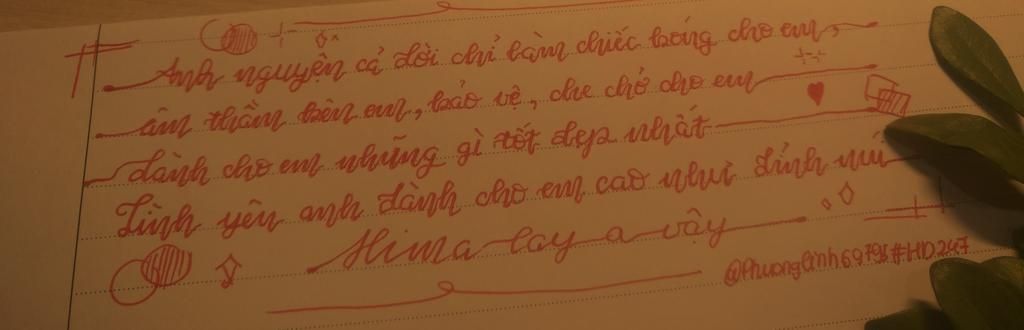 Anh nguyện cả đời chỉ làm chiếc bóng cho em,
âm thầm bên em, bảo vệ, che chở cho em
dành cho em những gì tốt đẹp nhất
Tình yêu anh dành cho em cao như đỉnh núi
Hima lay a vậy
@Phuonglinh6979 #HD247